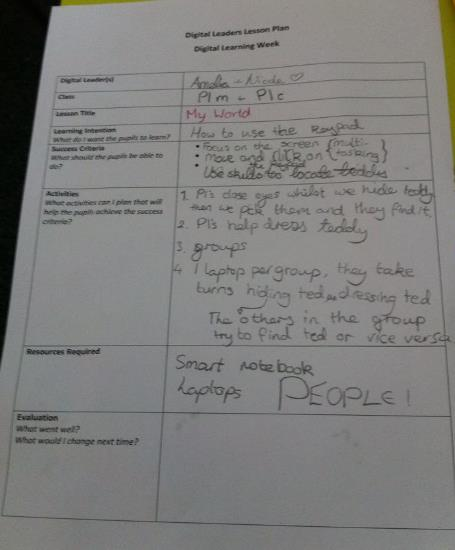 Digital Leaders Lesson Plan
Digital Learning Week
Digital Leader(s)
Amelia + Nicole ♡
Class
P1m + P1c
Lesson Title
My World
Learning Intention
What do I want the pupils to learn?
How to use the keypad
Success Criteria
What should the pupils be able to
do?
• Focus on the screen {multi-
• Move and click on tasking}
the keypad
• Use skills to locate teddy
Activities
What activities can I plan that will
help the pupils achieve the success
criteria?
1. P1's close eyes whilst we hide teddy
then we pick them and they find it.
2. P1s help dress teddy
3. groups
4 1 laptop per group, they take
turns hiding ted or dressing ted
The others in the group
try to find ted or vice versa
Resources Required
Smart notebook
Laptops PEOPLE!
Evaluation
What went well?
What would I change next time?